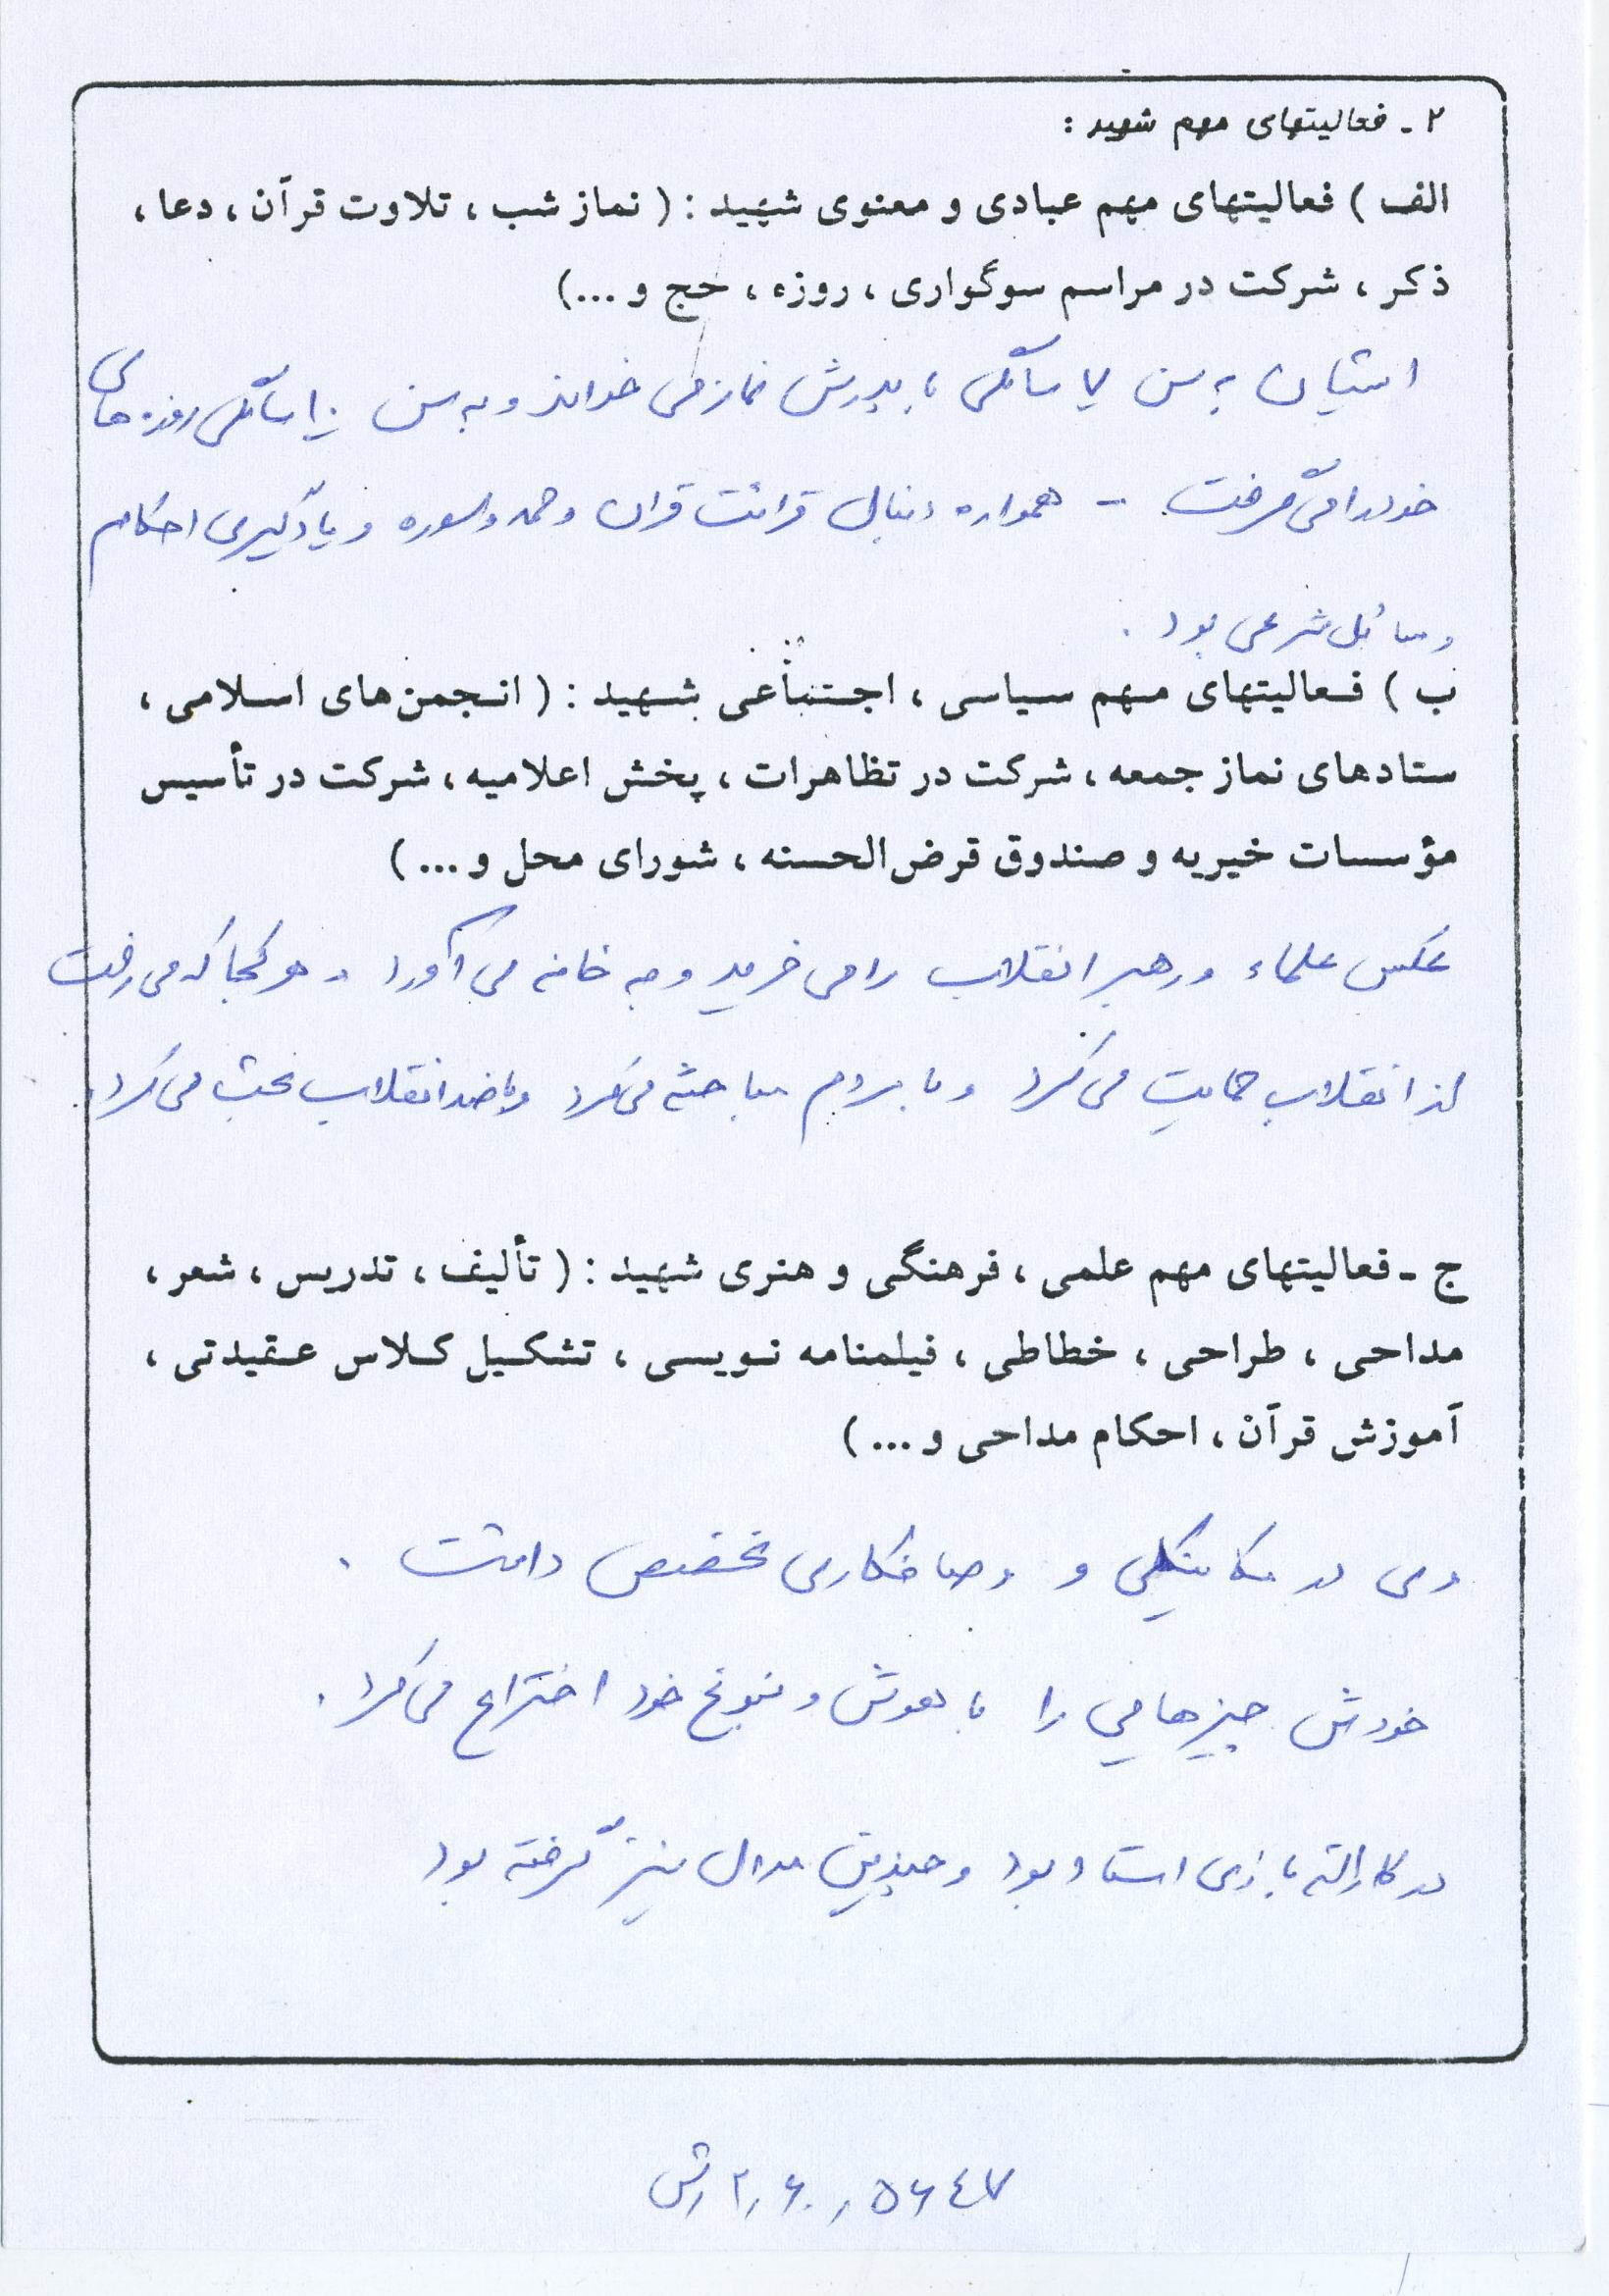 ۲ - فعالیتهای مهم شهید :
الف ) فعالیتهای مهم عبادی و معنوی شهید : ( نماز شب ، تلاوت قرآن ، دعا ،
ذکر ، شرکت در مراسم سوگواری ، روزه ، حج و ...)
ایشان به سن ۷ سالگی با پدرش نماز می خواند و به سن ۱۰ سالگی روزه های
خود را می گرفت - همواره دنبال قرائت قران و حمد و سوره و یادگیری احکام
و مسائل شرعی بود .
ب ) فعالیتهای مهم سیاسی ، اجتماعی شهید : ( انجمن های اسلامی ،
ستادهای نماز جمعه ، شرکت در تظاهرات ، پخش اعلامیه ، شرکت در تأسیس
مؤسسات خیریه و صندوق قرض الحسنه ، شورای محل و ... )
عکس علماء و رهبر انقلاب را می خرید و به خانه می آورد و هر کجا که می رفت
از انقلاب حمایت می کرد و با مردم مباحثه می کرد و با ضد انقلاب بحث می کرد.
ج - فعالیتهای مهم علمی ، فرهنگی و هنری شهید : ( تألیف ، تدریس ، شعر ،
مداحی ، طراحی ، خطاطی ، فیلمنامه نویسی ، تشکیل کلاس عقیدتی ،
آموزش قرآن ، احکام مداحی و ... )
وی در مکانیکی و و صافکاری تخصص داشت .
خودش چیزهایی را با هوش و نبوغ خود اختراع می کرد .
در کاراته بازی استاد بود و چندین مدال نیز گرفته بود